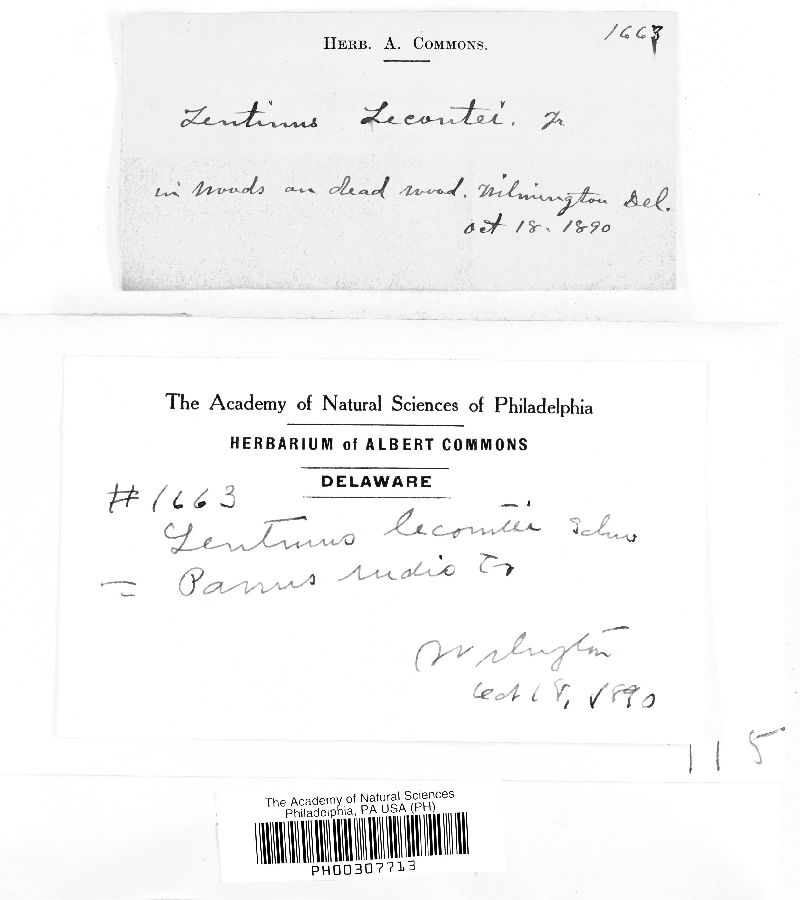 1663
HERB. A. COMMONS.
Lentinus Lecontei. Fr
in woods on dead wood. Wilmington Del.
Oct 18. 1890
The Academy of Natural Sciences of Philadelphia
HERBARIUM of ALBERT COMMONS
DELAWARE
#1663
Lentinus lecomtei Schw
= Panus rudis Fr
Wilmington
Oct 18, 1890
115
The Academy of Natural Sciences
Philadelphia, PA USA (PH)
PH00307713